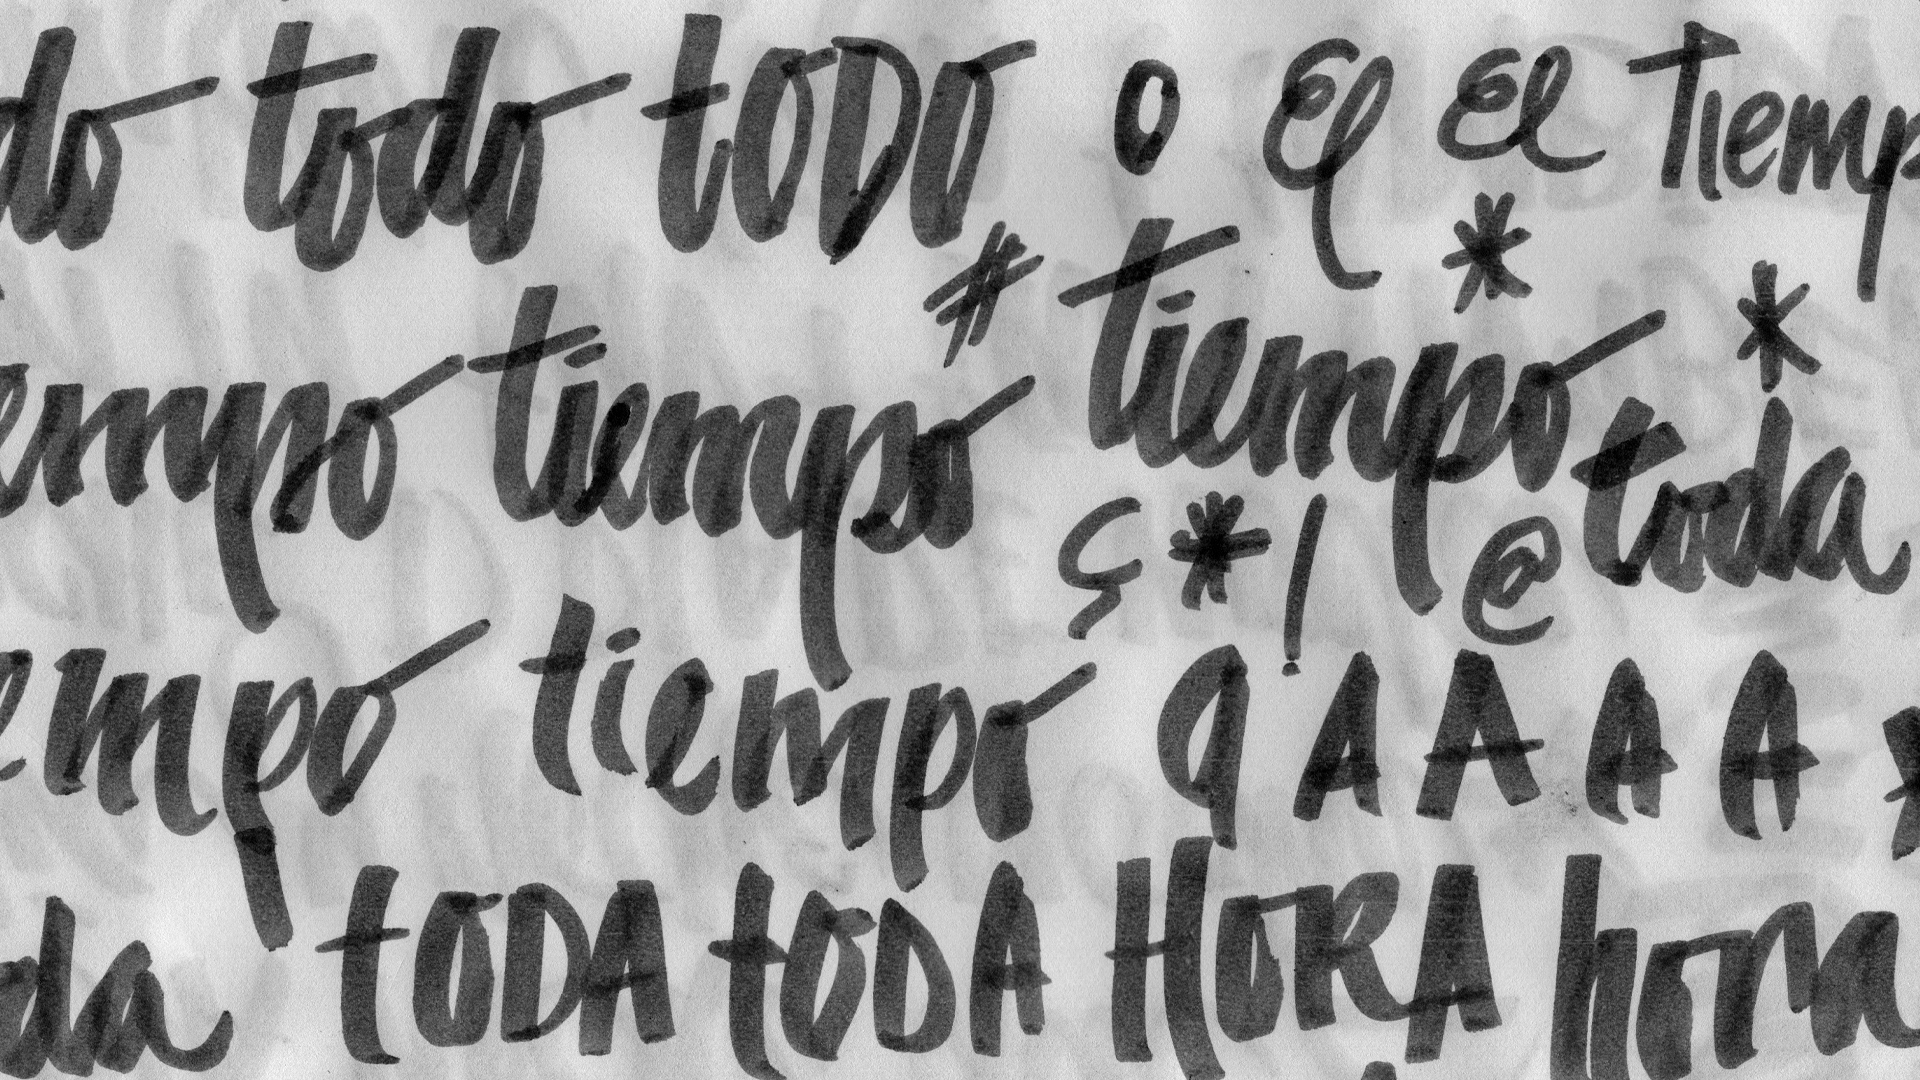 do todo toDO o El El Tiemp
# tiempo * *
empo tiempo toda
ç * ! @
empo tiempo a A A A A *
da tODA tODA HORA hora